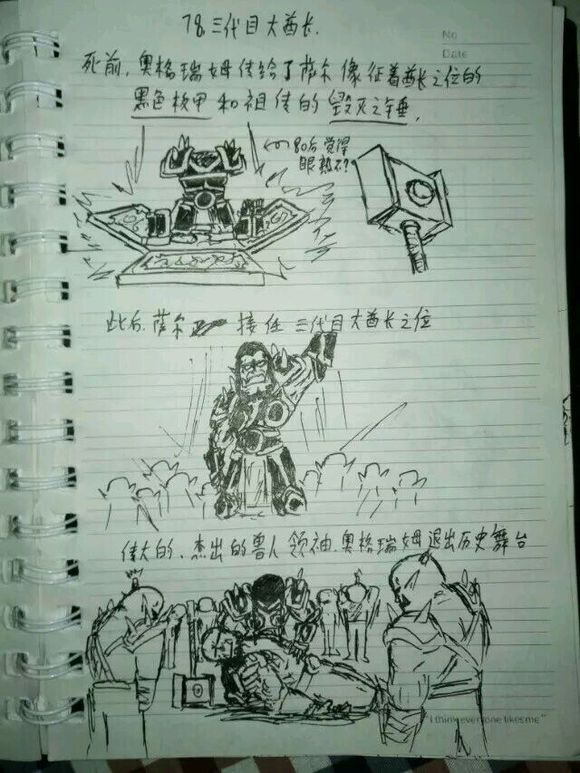 78.三代目大酋长.
No
Date
死前,奥格瑞姆传给了萨尔像征着酋长之位的
黑色板甲和祖传的毁灭之锤.
80后觉得
眼熟不?
此后.萨尔 接任 三代目大酋长之位
伟大的、杰出的兽人领袖.奥格瑞姆退出历史舞台
"I think everyone likes me"